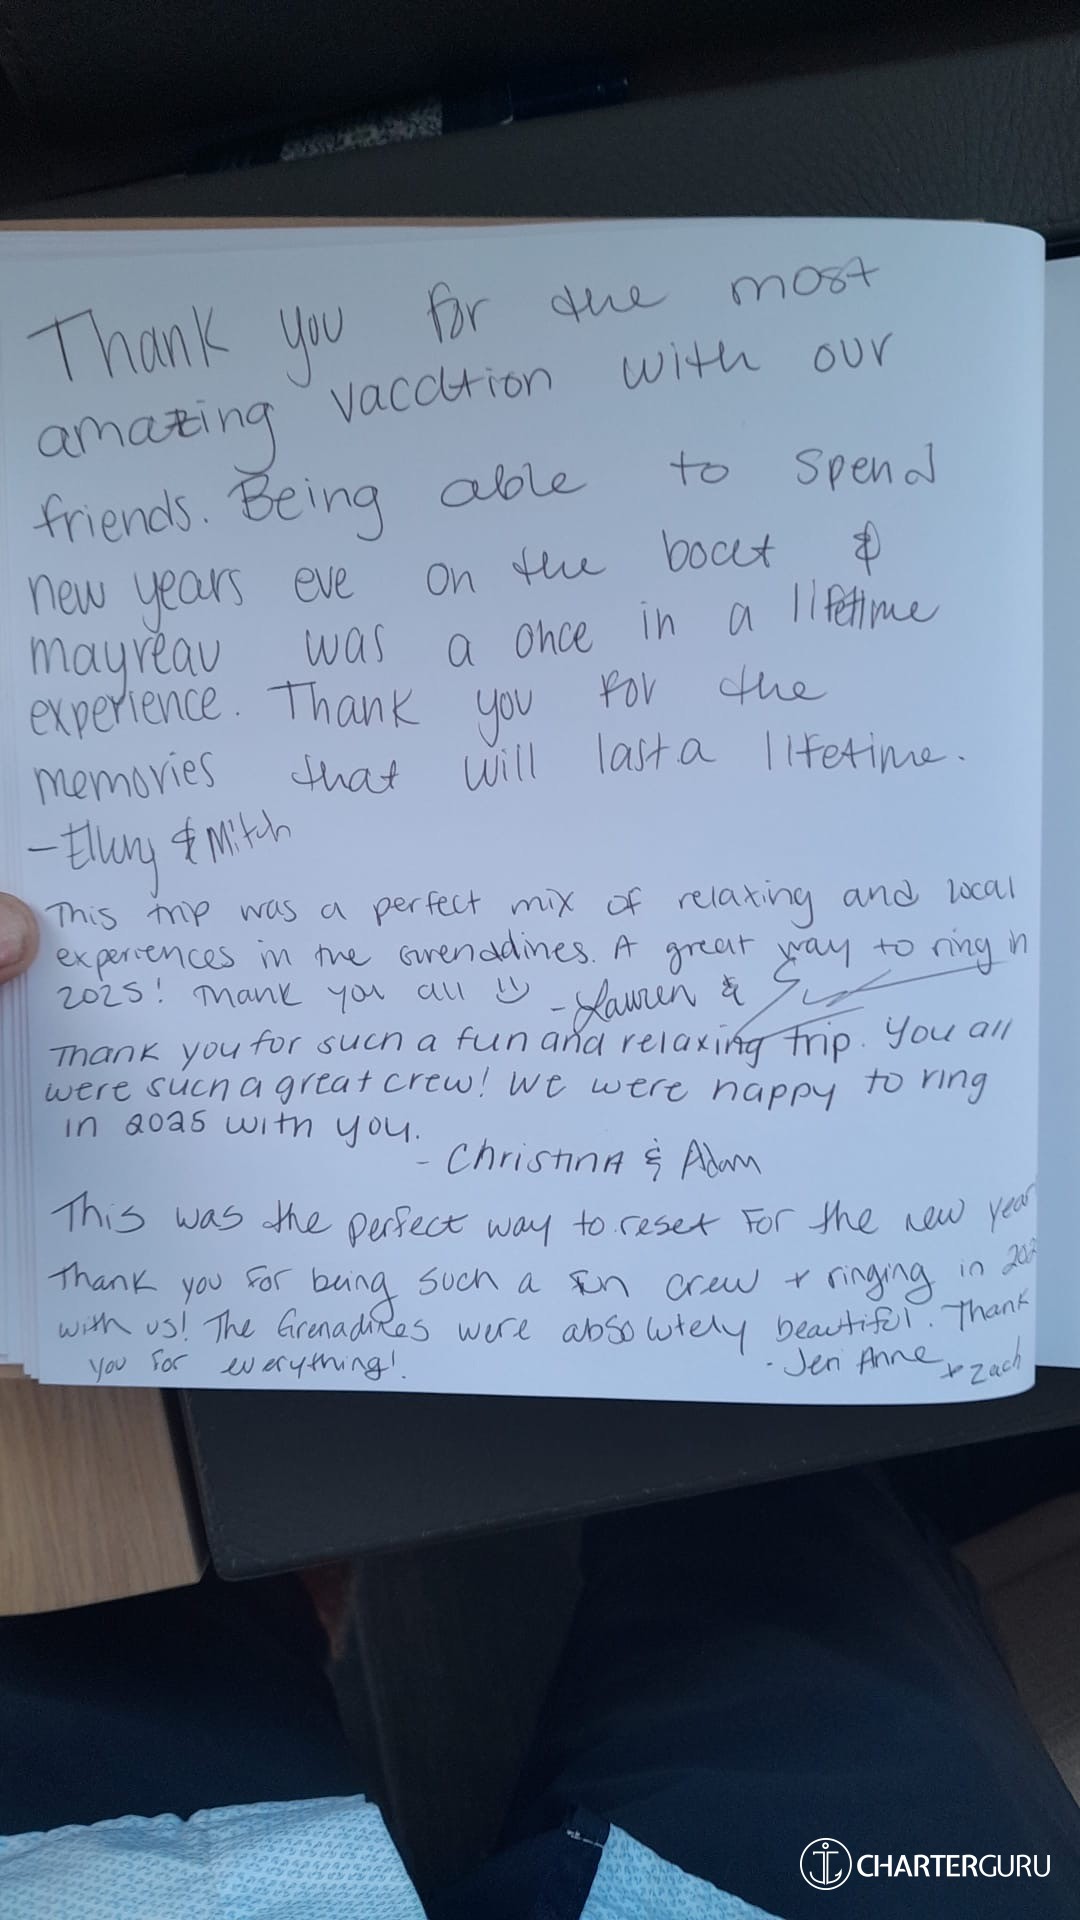 Thank you for the most
amazing vacation with our
friends. Being able to spend
new years eve on the boat &
mayreau was a once in a lifetime
experience. Thank you for the
memories that will last a lifetime.
- Ellery & Mitch
This trip was a perfect mix of relaxing and local
experiences in the Grenadines. A great way to ring in
2025! Thank you all :) - Lauren &
Thank you for such a fun and relaxing trip. You all
were such a great crew! We were happy to ring
in 2025 with you.
- Christina & Adam
This was the perfect way to reset for the new year
Thank you for being such a fun crew + ringing in 202
with us! The Grenadines were absolutely beautiful. Thank
you for everything!
- Jeri Anne + Zach
CHARTERGURU